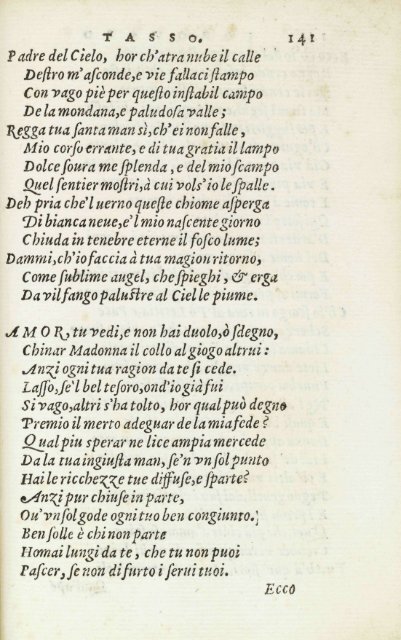 TASSO. 141
Padre del Cielo, hor ch'atra nube il calle
Destro m'asconde, e vie fallaci stampo
Con vago piè per questo instabil campo
De la mondana, e paludosa valle;
Regga tua santa man sì, ch'ei non falle,
Mio corso errante, e di tua gratia il lampo
Dolce soura me splenda, e del mio scampo
Quel sentier mostri, à cui vols'io le spalle.
Deh pria che'l uerno queste chiome asperga
Di bianca neue, e'l mio nascente giorno
Chiuda in tenebre eterne il fosco lume;
Dammi, ch'io faccia à tua magion ritorno,
Come sublime augel, che spieghi, & erga
Da vil fango palustre al Ciel le piume.
AMOR, tu vedi, e non hai duolo, ò sdegno,
Chinar Madonna il collo al giogo altrui:
Anzi ogni tua ragion da te si cede.
Lasso, se'l bel tesoro, ond'io già fui
Si vago, altri s'ha tolto, hor qual può degno
Premio il merto adeguar de la mia fede?
Qual piu sperar ne lice ampia mercede
Da la tua ingiusta man, se'n vn sol punto
Hai le ricchezze tue diffuse, e sparte?
Anzi pur chiuse in parte,
Ou'vn sol gode ogni tuo ben congiunto.
Ben folle è chi non parte
Homai lungi da te, che tu non puoi
Pascer, se non di furto i serui tuoi.
Ecco